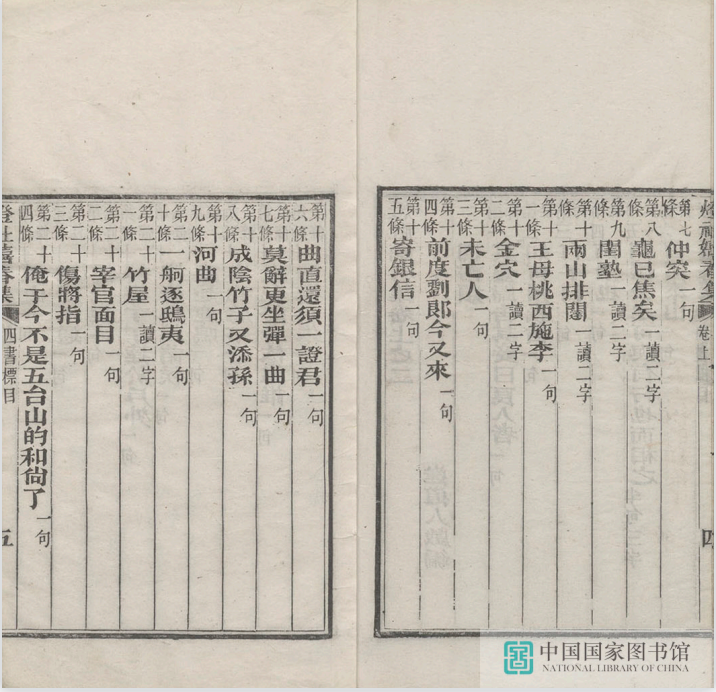 卷上
第七條 仲突 一句
第八條 龜已焦矣 一讀二字
第九條 閨塾 一讀二字
第十條 兩山排闥 一讀二字
第十一條 王母桃西施李 一句
第十二條 金穴 一讀二字
第十三條 未亡人 一句
第十四條 前度劉郎今又來 一句
第十五條 寄銀信 一句
第十六條 曲直還須一證君 一句
第十七條 莫辭更坐彈一曲 一句
第十八條 成陰竹子又添孫 一句
第十九條 河曲 一句
第二十條 一舸逐鴟夷 一句
第二十一條 竹屋 一讀二字
第二十二條 宰官面目 一句
第二十三條 傷將指 一句
第二十四條 俺于今不是五台山的和尙了 一句
燈社嬉春集 四書標目 五
中国国家图书馆
NATIONAL LIBRARY OF CHINA